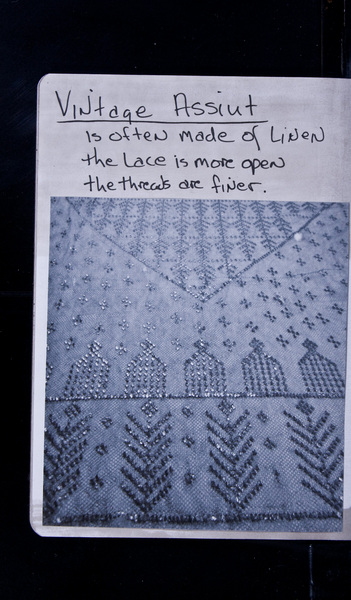 Vintage Assiut
is often made of Linen
the Lace is more open
the threads are finer.